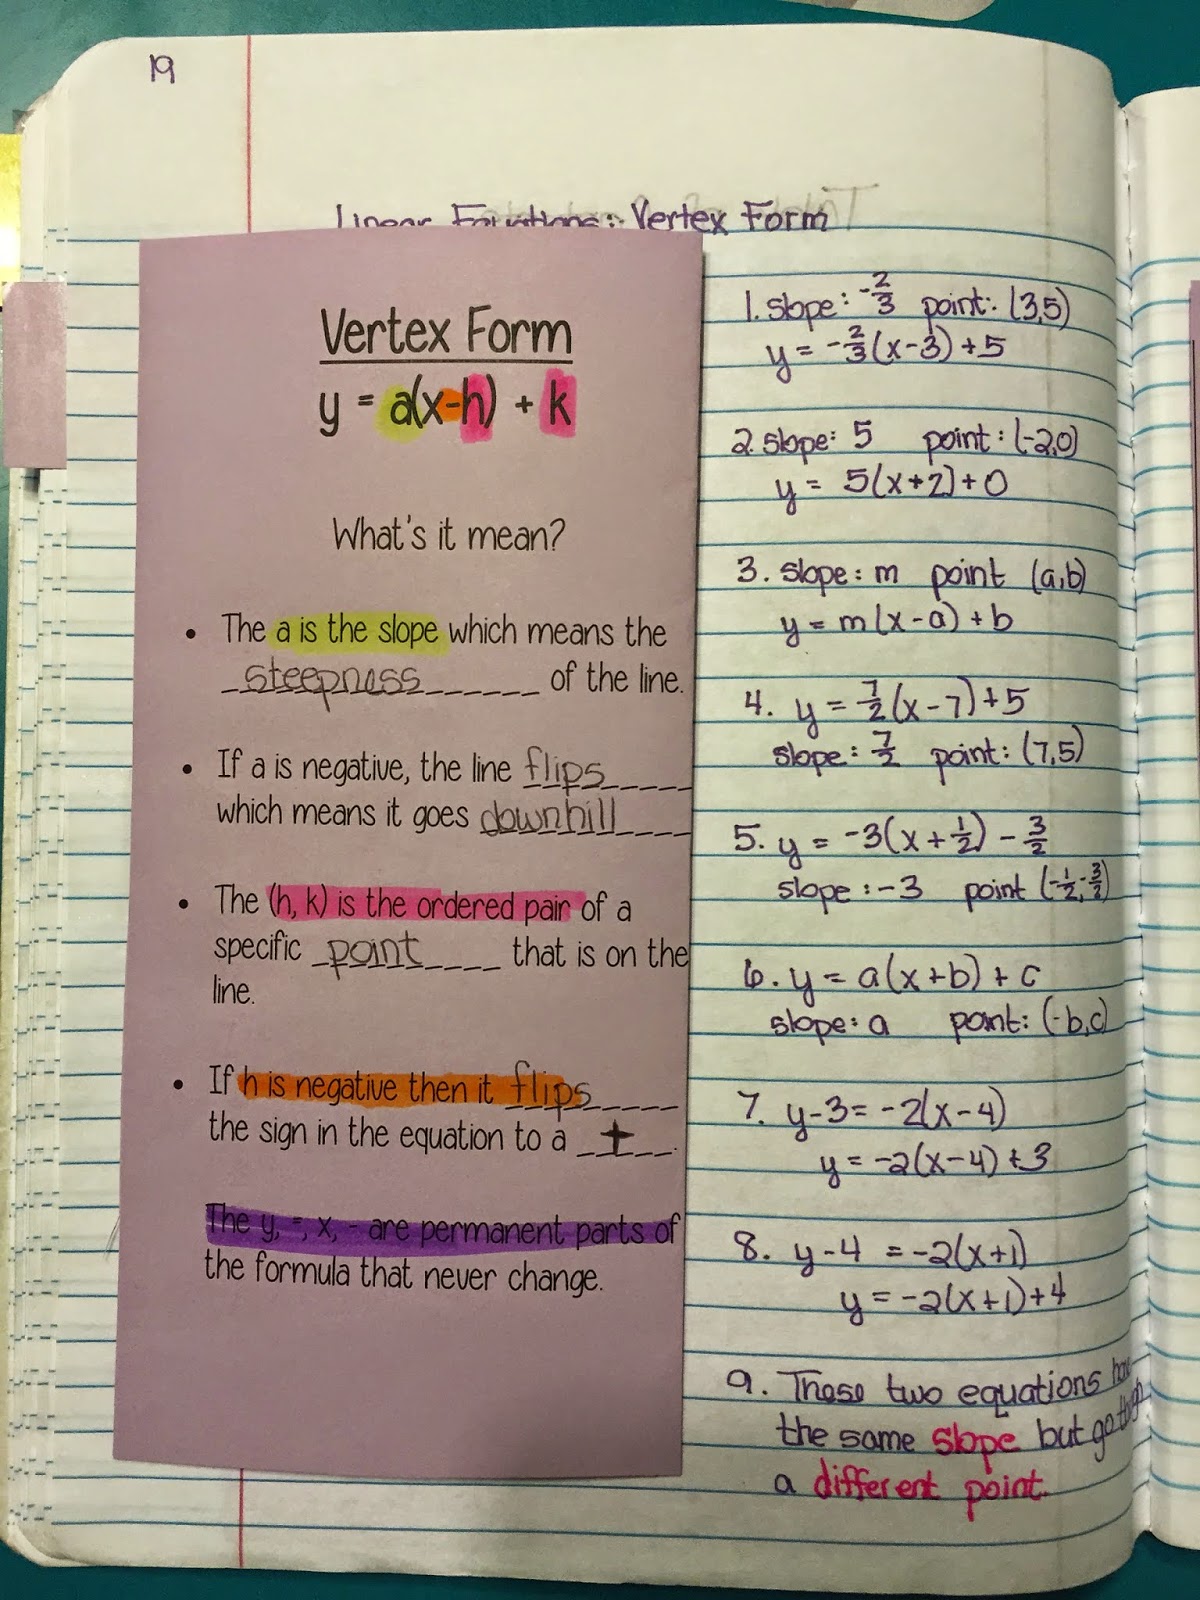 19
Linear Equations: Vertex Form
Vertex Form
y = a(x-h) + k
What's it mean?
• The a is the slope which means the
steepness of the line.
• If a is negative, the line flips
which means it goes downhill
• The (h, k) is the ordered pair of a
specific point that is on the
line.
• If h is negative then it flips
the sign in the equation to a +.
The y, =, x, - are permanent parts of
the formula that never change.
1. slope: -2/3 point: (3,5)
y = -2/3(x-3)+5
2. slope: 5 point: (-2,0)
y = 5(x+2)+0
3. slope: m point (a,b)
y = m(x-a)+b
4. y = 7/2(x-7)+5
slope: 7/2 point: (7,5)
5. y = -3(x+1/2) - 3/2
slope: -3 point (-1/2,-3/2)
6. y = a(x+b)+c
slope: a point: (-b,c)
7. y-3 = -2(x-4)
y = -2(x-4)+3
8. y-4 = -2(x+1)
y = -2(x+1)+4
9. These two equations have
the same slope but go through
a different point.